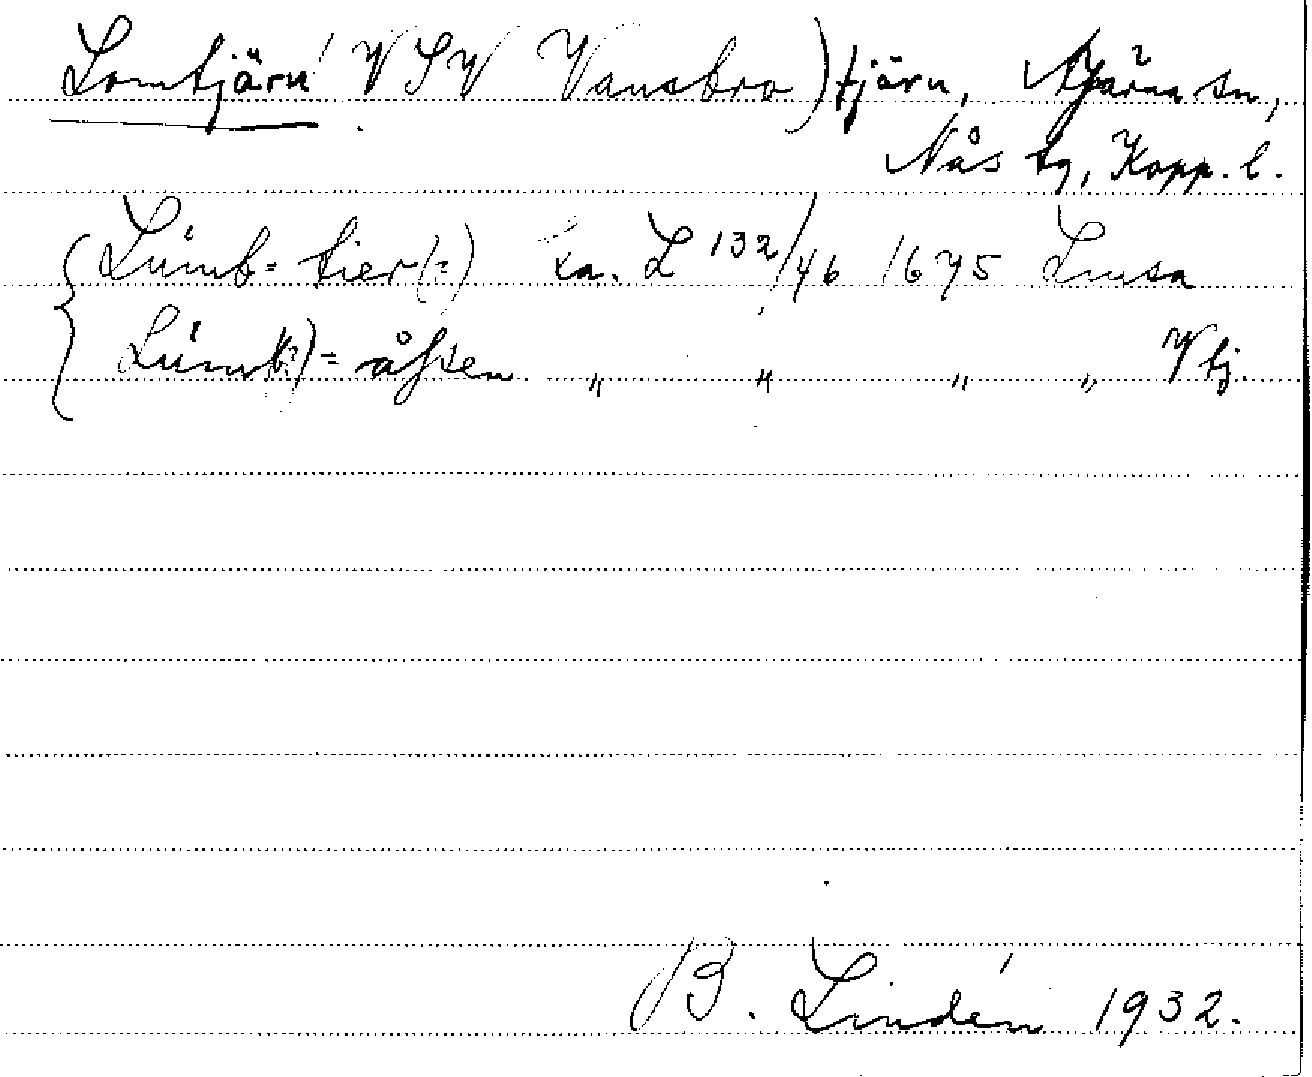 Lomtjärn (VSV Vansbro) tjärn, Järna sn,
Nås tg, Kopp. l.
Lúmb= tier(=) ka. L 132/46 1675 Limsa
Lúm(b)= åhsen " " " " Vtj.
B. Lindén 1932.